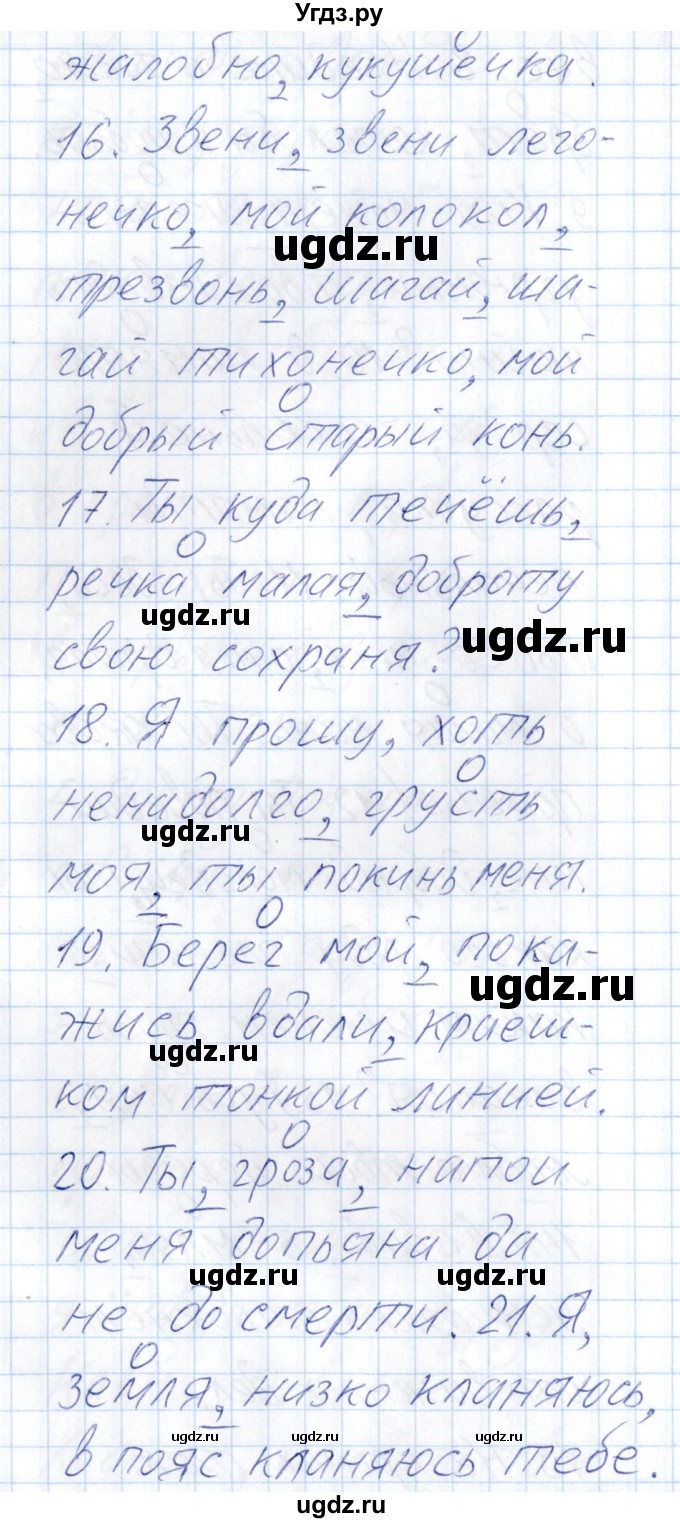 Угдз.ру
жалобно, кукушечка.
16. Звени, звени лего-
нечко, мой колокол,
ugdz.ru
трезвонь, шагай, ша-
гай тихонечко, мой
добрый старый конь.
17. Ты куда течёшь,
речка малая, доброту
ugdz.ru
ugdz.ru
свою сохраня?
18. Я прошу, хоть
ненадолго, грусть
ugdz.ru
моя, ты покинь меня.
19. Берег мой, пока-
ugdz.ru
жись вдали, краеш-
ugdz.ru
ком тонкой линией.
20. Ты, гроза, напои
меня допьяна да
ugdz.ru
ugdz.ru
не до смерти. 21. Я,
земля, низко кланяюсь,
ugdz.ru
ugdz.ru
ugdz.ru
в пояс кланяюсь тебе.
ugdz.ru